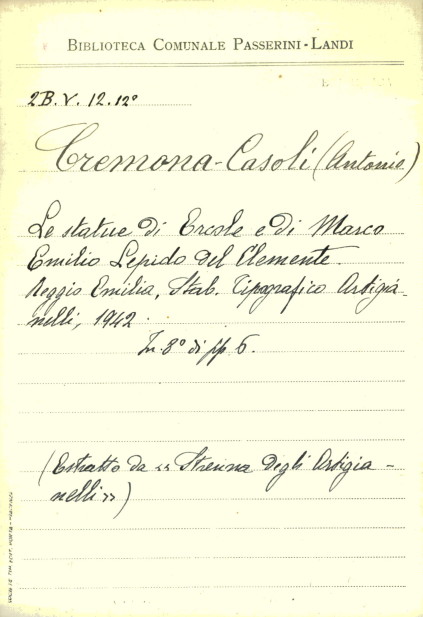 BIBLIOTECA COMUNALE PASSERINI-LANDI
2B.V.12.12°
Cremona-Casoli (Antonio)
Le statue di Ercole e di Marco
Emilio Lepido del Clemente.
Reggio Emilia, Stab. Tipografico Artigia-
nelli, 1942.
In 8° di pp 6.
(Estratto da «Strenna degli Artigia-
nelli»)